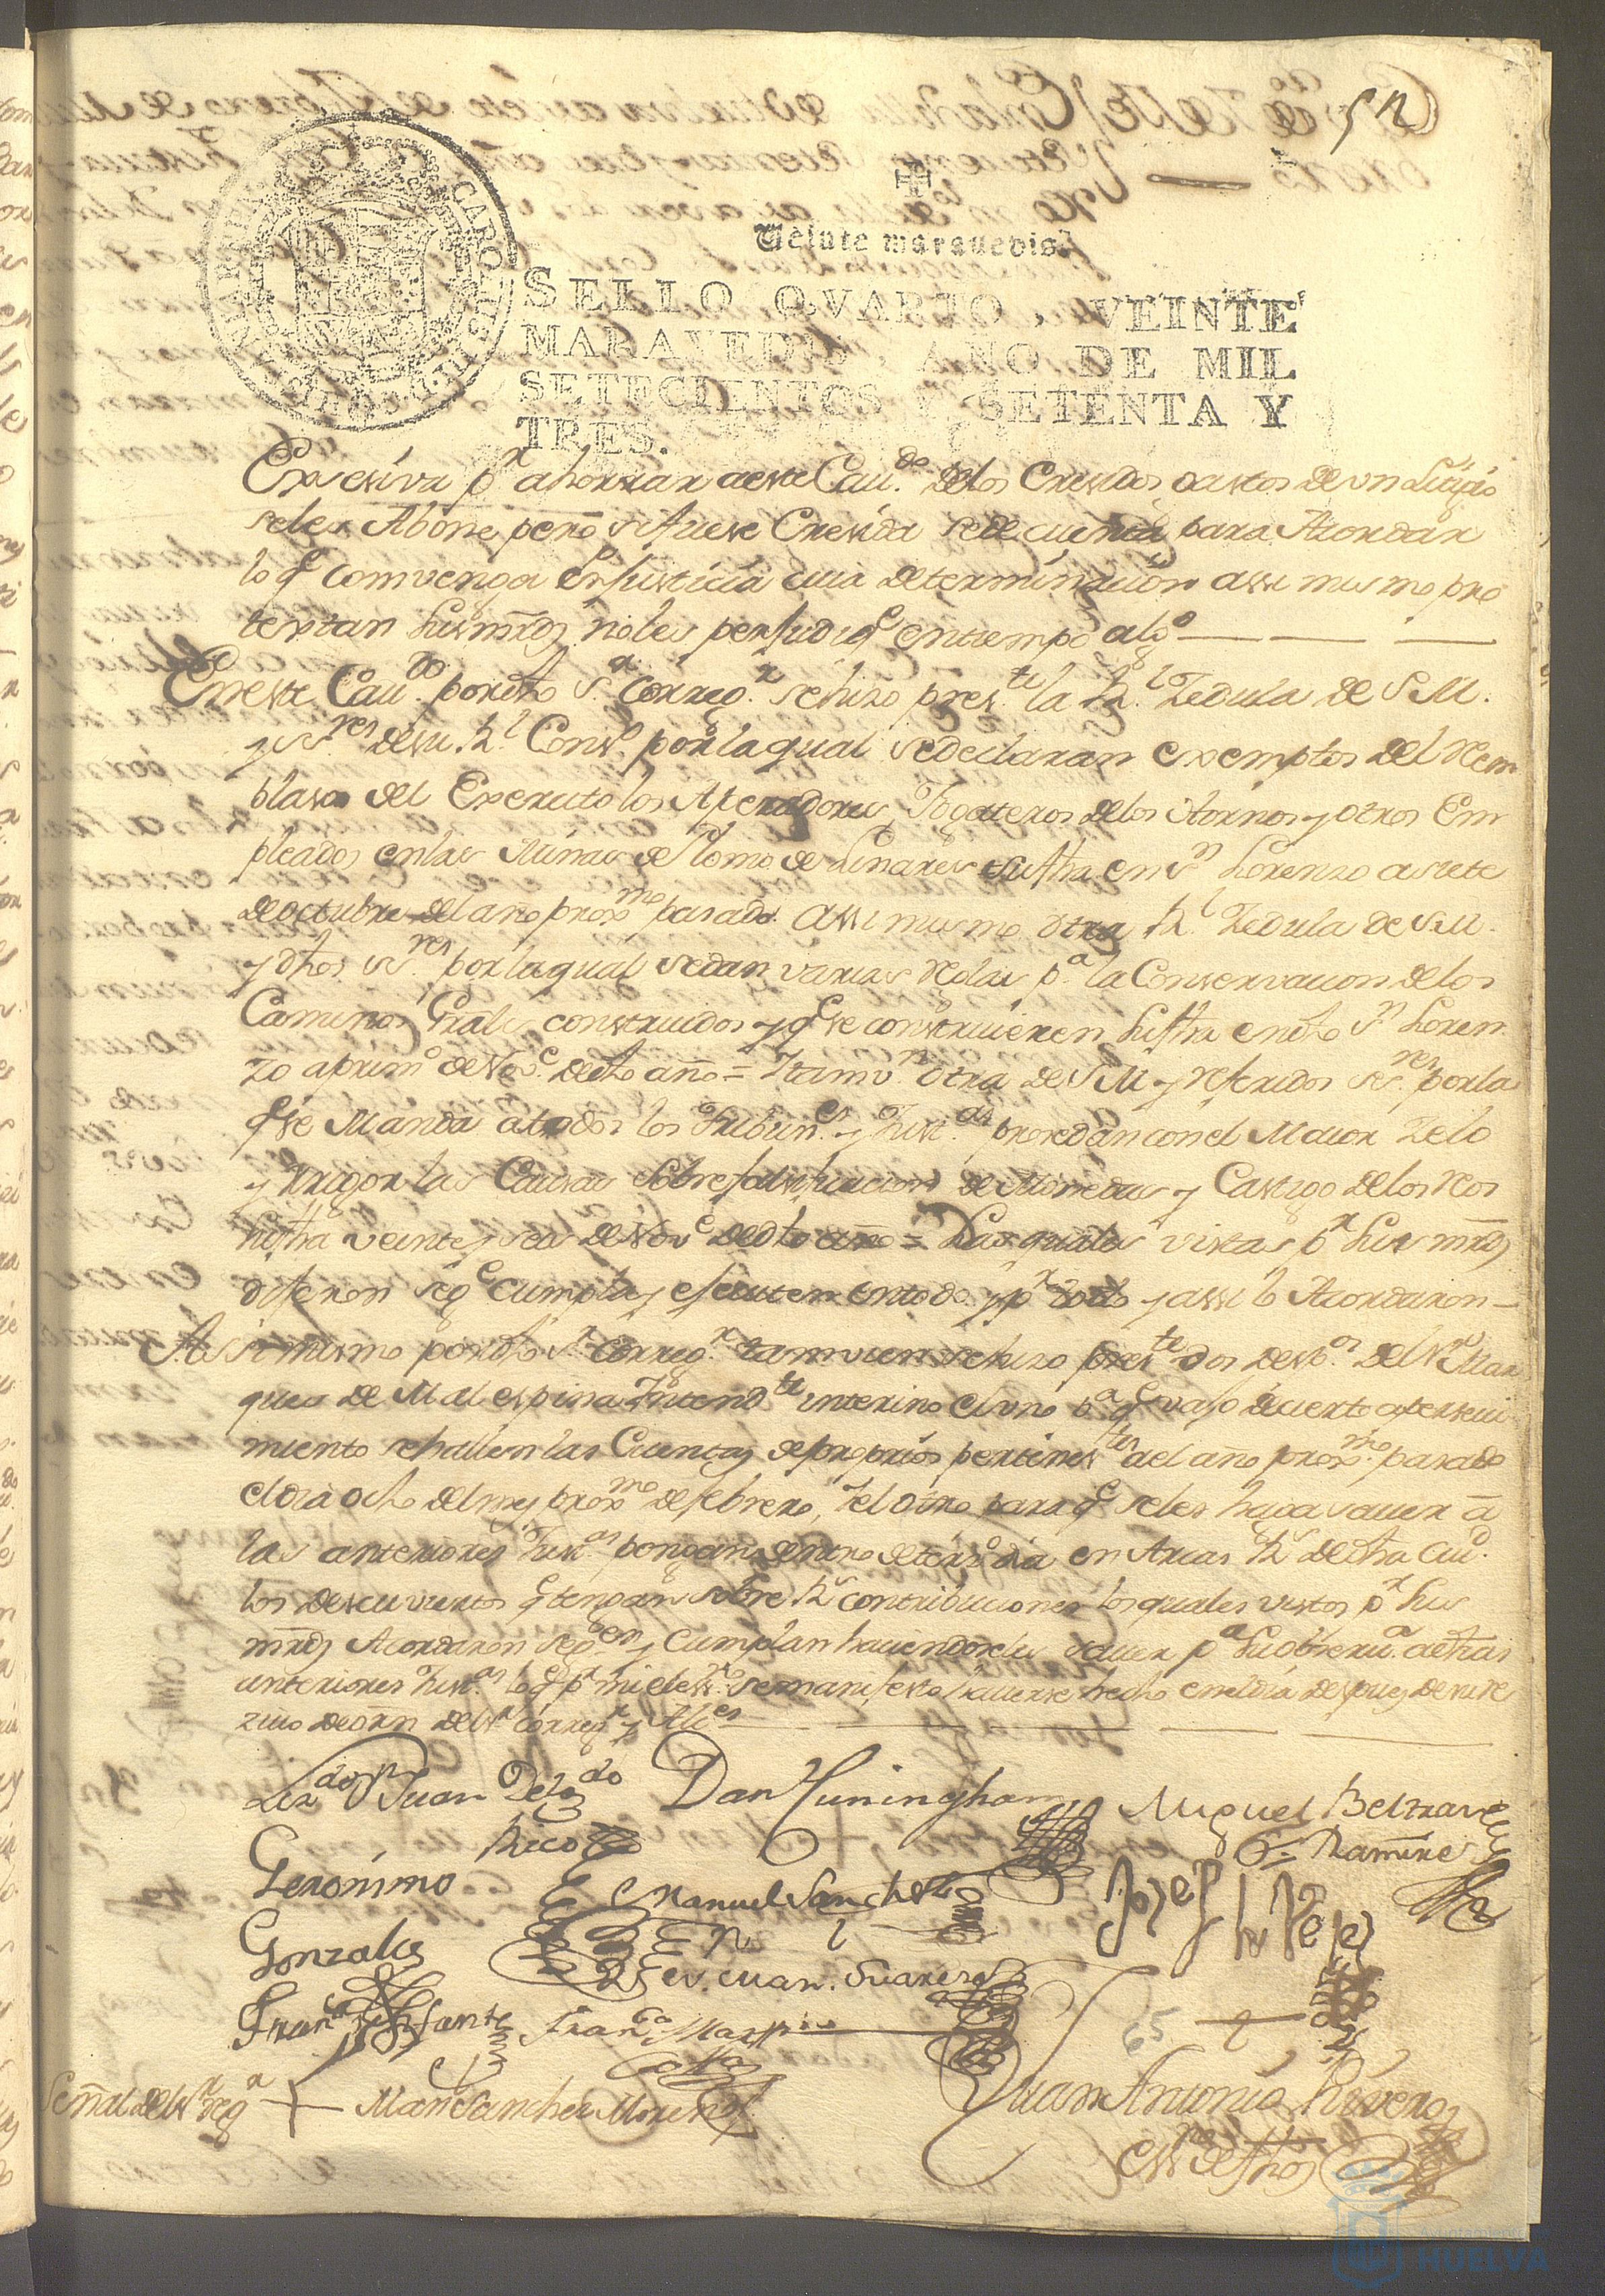 52
Veinte maravedis.
SELLO QVARTO, VEINTE
MARAVEDIS, AÑO DE MIL
SETECIENTOS Y SETENTA Y
TRES.
Exsesiva pr ahorrar aeste Caudo. delos Cresidos gastos de un Litigio
seles Abone pero si fuese Cresida se de cuenta para Acordar
lo qe comvenga en Justicia cuia determinazion assi mismo pro
textan sus mrds noles perjudiqe en tiempo algo
En este Caudo. por dho Sr. Corregr. se hizo preste la Rl. Zedula de S.M.
y ssres desu Rl. Conso. por la qual se declaran exemptos del Rem
plaso del Exercito los Operadores, Fogateros delos Hornos y otros Em
pleados enlas Minas de Plomo de Linares su fha en Sn Lorenzo asiete
de octubre del año proxmo pasado. Assi mismo otra Rl. Zedula de S.M.
y dhos ssres por la qual se dan varias Reglas pa. la Conservacion delos
Caminos Grales construidos y qe se construieren su fha en dho Sn Loren
zo a primo de Nove. de dho año = Y tamvn. otra de S M y referidos ssres por la
qe se Manda a todos los Tribunes y Justas. procedan con el Maior Zelo
y rrigor las Causas sobre falsificacion de Monedas y Castigo delos Reos
su fha veinte y seis de Nove de dho año = Las quales vistas pr sus mrds
dijeron se ge Cumpla y ejecuten en todo y pr todo y assi lo Acordaron
Assimismo por dho Sr Corregr. tamvien se hizo preste dos desps. del Sr Mar
ques de Malespina Intendte interino el uno pa qe vajo de cierto apersevi
miento se hallen las Cuentas de proprios pertenestes al año proxmo pasado
el dia ocho del mes proxmo de febrero, Y el otro para qe seles haga saver a
las anteriores Justas. pongan dentro de terso dia en Arcas Rs de dha Ciud.
los descuviertos qe tengan sobre Rs contribuciones los quales vistos pr sus
mrds Acordaron se gen y Cumplan haciendoseles saver pa su observa. a dhas
anteriores Justas. lo qe pr mi el essno se manifesto haverse hecho en el dia despues de su re
zivo de orn del Sr Corregr y Alces
Lizdo Dn Juan Delgdo
Rico
Dan Cuningham
Miguel Beltran
Ramires
Geronimo
Gonzales
Manuel Sanches
Josef Lopes
Man. Suares
Franco Infante
Franco Marn
65
Señal del Sr Regr
Man Sanches Moreno
Juan Antonio Rivero
essno de fhos
Ayuntamiento de
HUELVA